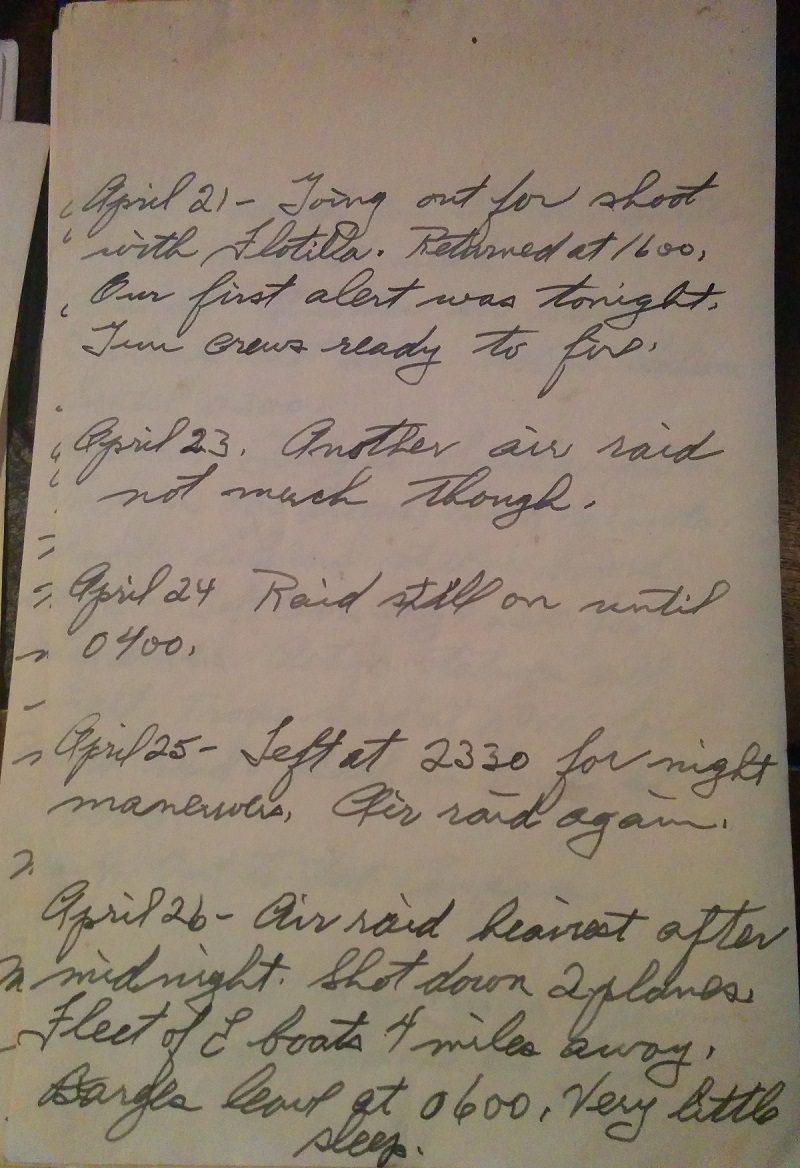 April 21- Going out for shoot
with Flotilla. Returned at 1600.
Our first alert was tonight.
Gun crews ready to fire.
April 23. Another air raid
not much though.
April 24 Raid still on until
0400.
April 25- Left at 2330 for night
maneuvers. Air raid again.
April 26- Air raid heaviest after
midnight. Shot down 2 planes.
Fleet of E boats 4 miles away.
Barges leave at 0600. Very little
sleep.